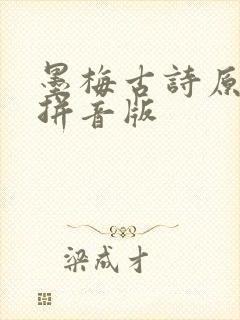 墨梅古詩原
拼音版
梁成才